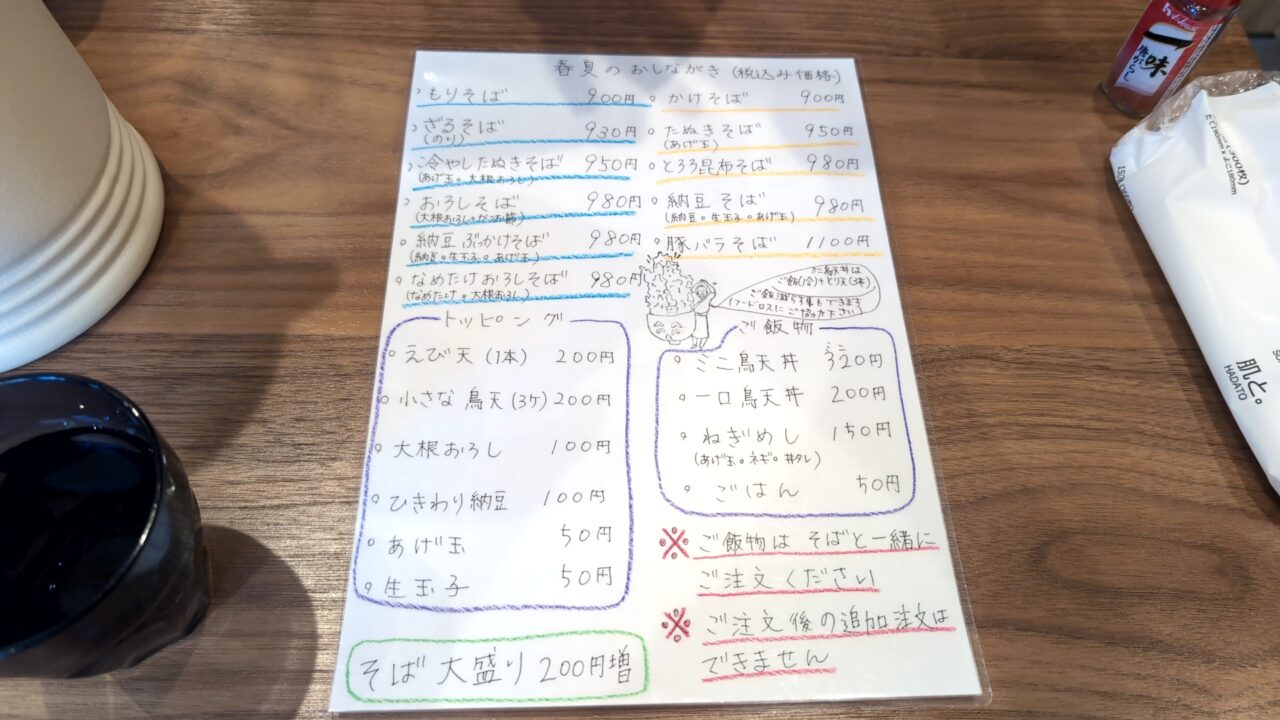 春夏のおしながき (税込み価格)
もりそば 900円
ざるそば 930円
(のり)
冷やしたぬきそば 950円
(あげ玉。大根おろし)
おろしそば 980円
(大根おろし。かつお節)
納豆ぶっかけそば 980円
(納豆。生玉子。あげ玉)
なめたけおろしそば 980円
(なめたけ。大根おろし)
かけそば 900円
たぬきそば 950円
(あげ玉)
とろろ昆布そば 980円
納豆そば 980円
(納豆。生玉子。あげ玉)
豚バラそば 1100円
ミニ鳥天丼は
ご飯(1合)+とり天(3本)
ご飯減らす事もできます
(フードロスに ご協力下さい)
トッピング
えび天 (1本) 200円
小さな鳥天 (3ケ) 200円
大根おろし 100円
ひきわり納豆 100円
あげ玉 50円
生玉子 50円
ご飯物
ミニ鳥天丼 320円
一口鳥天丼 200円
ねぎめし 150円
(あげ玉。ネギ。丼タレ)
ごはん 50円
※ ご飯物は そばと一緒に
ご注文ください
※ ご注文後の追加注文は
できません
そば大盛り 200円増
一味
唐がらし
肌と。
HADATO